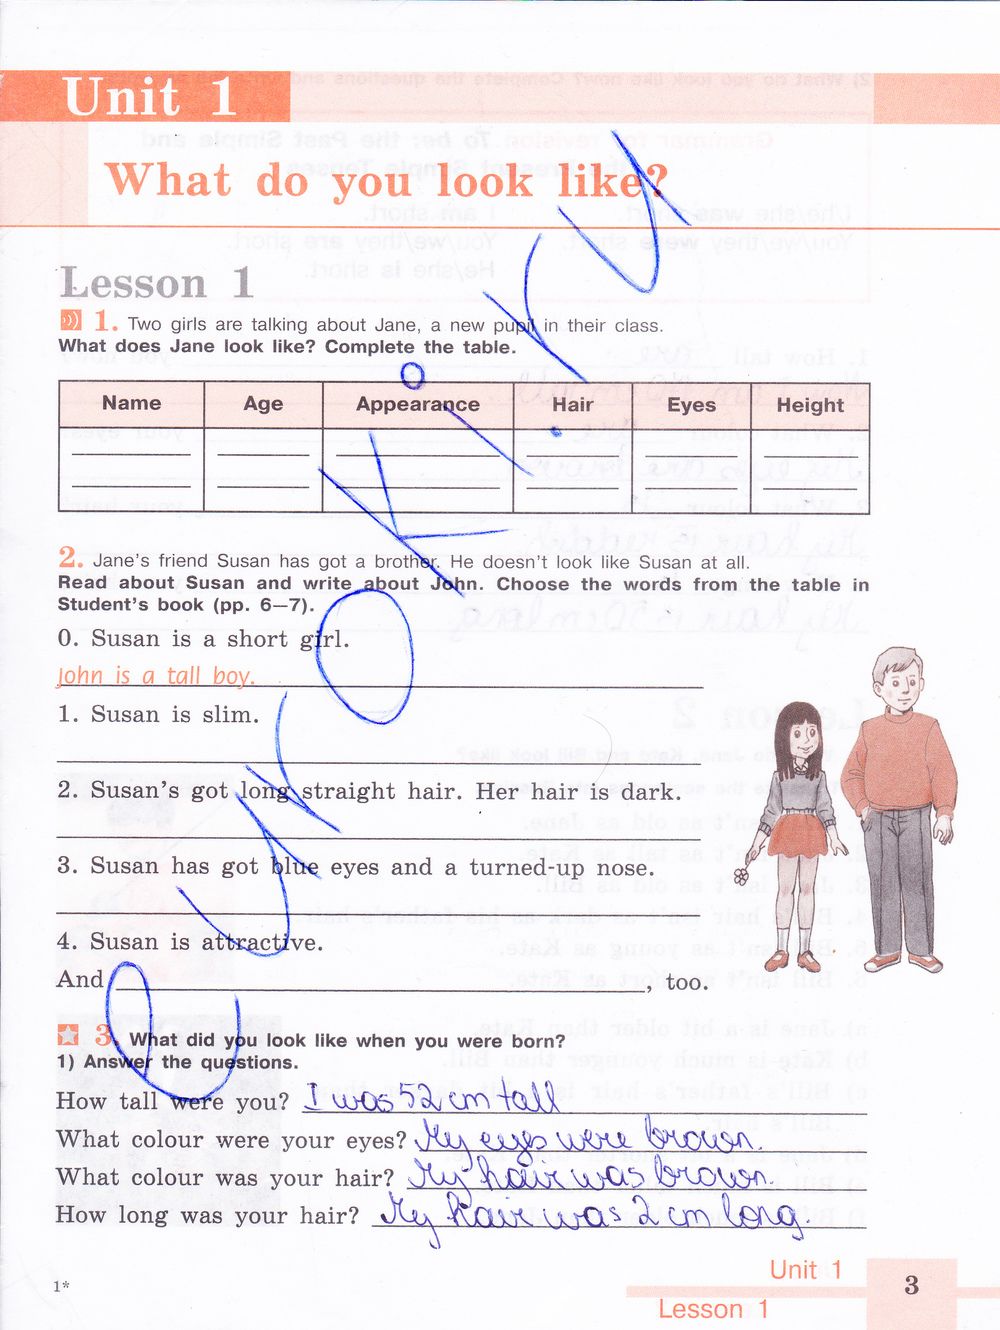 Unit 1
What do you look like?
Lesson 1
1. Two girls are talking about Jane, a new pupil in their class.
What does Jane look like? Complete the table.
Name Age Appearance Hair Eyes Height
2. Jane's friend Susan has got a brother. He doesn't look like Susan at all.
Read about Susan and write about John. Choose the words from the table in
Student's book (pp. 6—7).
0. Susan is a short girl.
John is a tall boy.
1. Susan is slim.
2. Susan's got long straight hair. Her hair is dark.
3. Susan has got blue eyes and a turned-up nose.
4. Susan is attractive.
And , too.
3. What did you look like when you were born?
1) Answer the questions.
How tall were you? I was 52 cm tall
What colour were your eyes? My eyes were brown.
What colour was your hair? My hair was brown.
How long was your hair? My hair was 2 cm long.
1*
Unit 1
Lesson 1
3